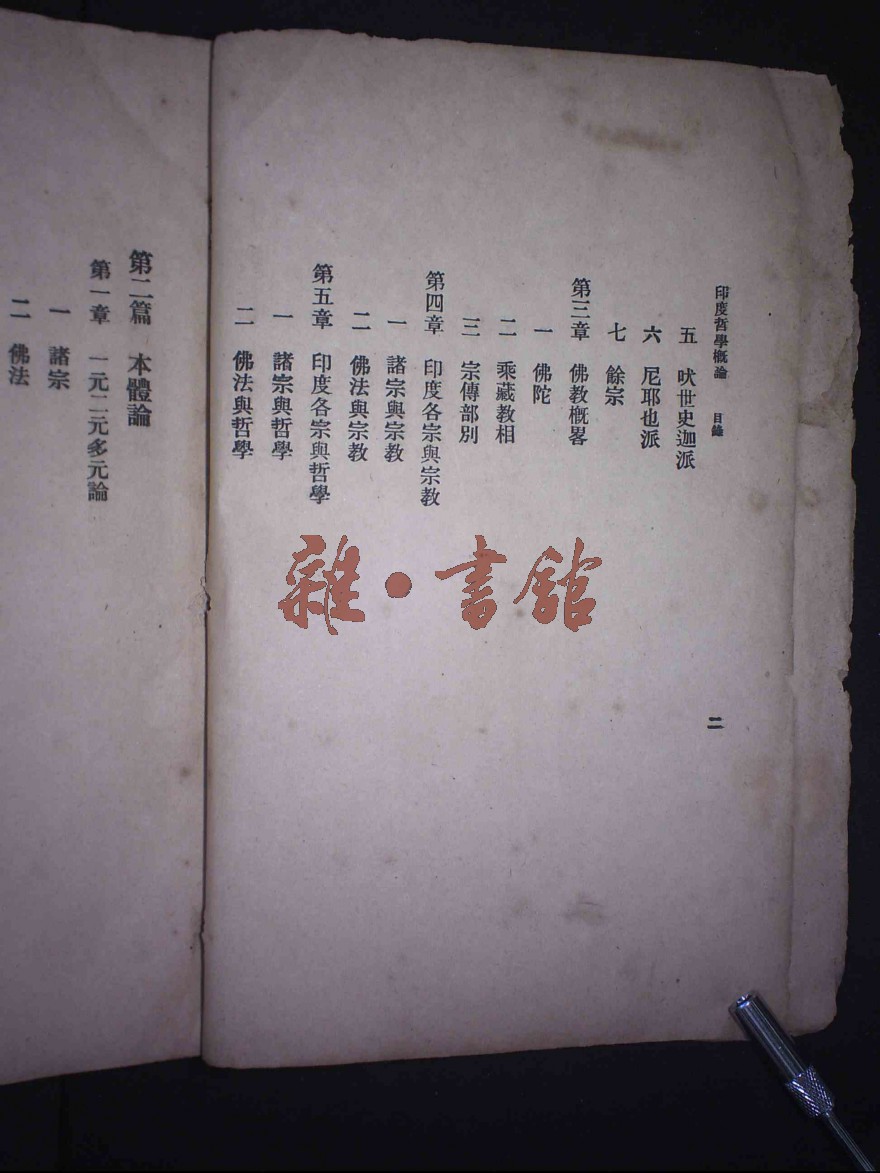 印度哲學概論 目錄
五 吠世史迦派
六 尼耶也派
七 餘宗
第三章 佛教概畧
一 佛陀
二 乘藏教相
三 宗傳部別
第四章 印度各宗與宗教
一 諸宗與宗教
二 佛法與宗教
第五章 印度各宗與哲學
一 諸宗與哲學
二 佛法與哲學
二
第二篇 本體論
第一章 一元二元多元論
一 諸宗
二 佛法
雜·書館